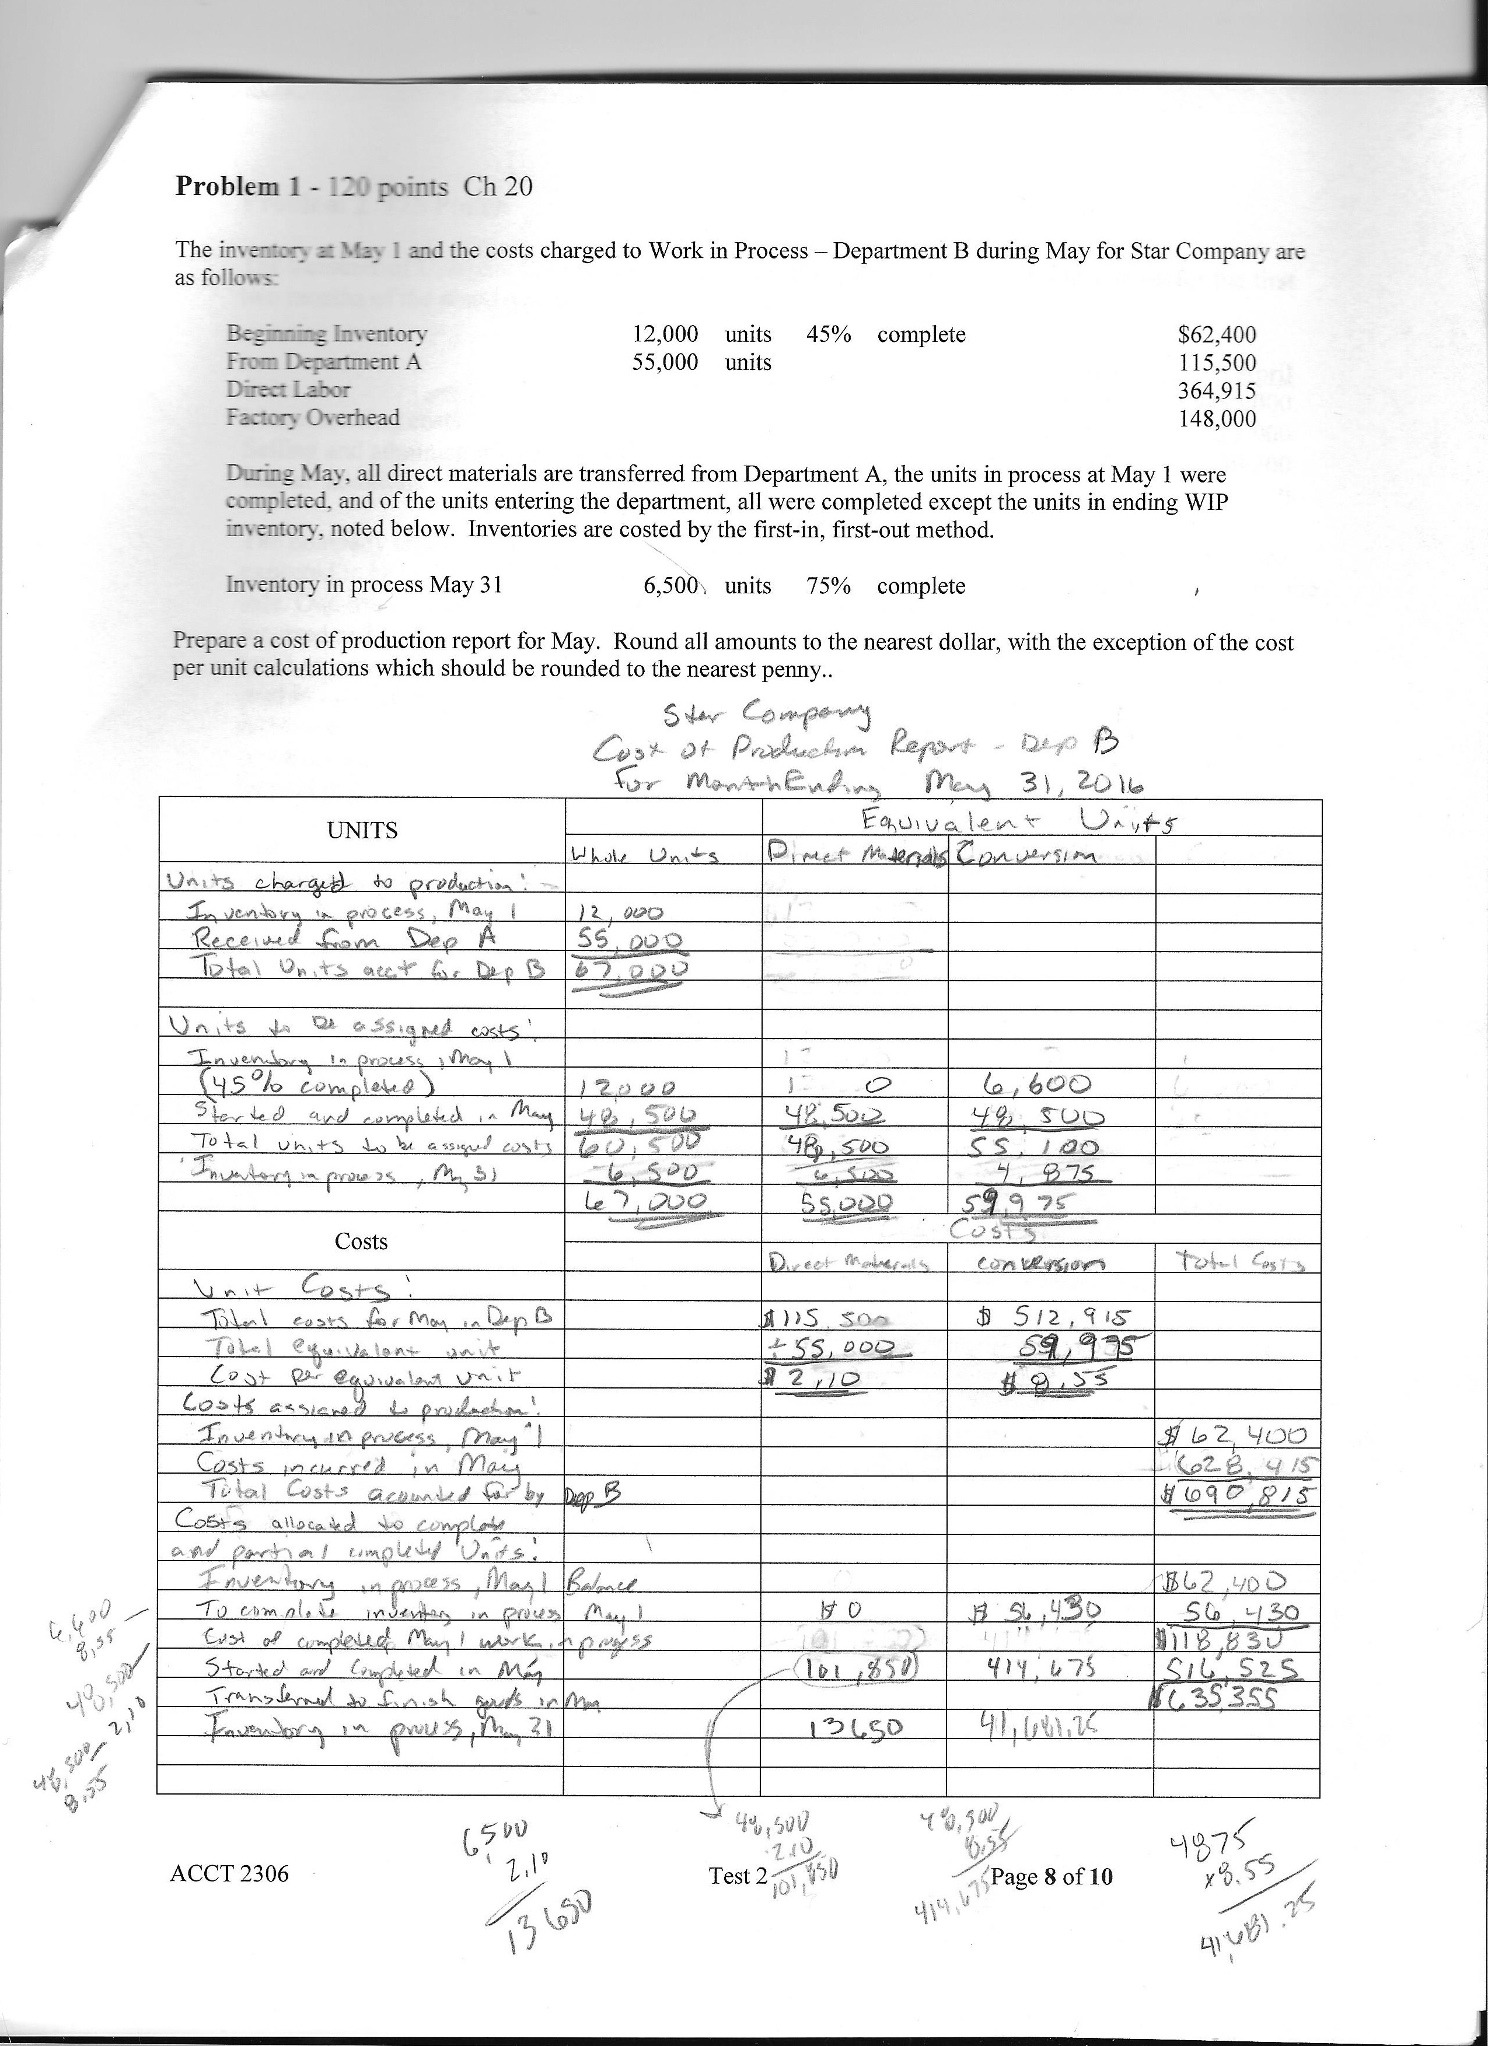 Problem 1 - 120 points Ch 20
The inventory at May 1 and the costs charged to Work in Process – Department B during May for Star Company are
as follows:
Beginning Inventory 12,000 units 45% complete $62,400
From Department A 55,000 units 115,500
Direct Labor 364,915
Factory Overhead 148,000
During May, all direct materials are transferred from Department A, the units in process at May 1 were
completed, and of the units entering the department, all were completed except the units in ending WIP
inventory, noted below. Inventories are costed by the first-in, first-out method.
Inventory in process May 31 6,500 units 75% complete
Prepare a cost of production report for May. Round all amounts to the nearest dollar, with the exception of the cost
per unit calculations which should be rounded to the nearest penny..
Star Company
Cost of Production Report - Dep B
For Month Ending May 31, 2016
UNITS Equivalent Units
Whole Units Direct Materials Conversion
Units charged to production:
Inventory in process, May 1 12,000
Received from Dep A 55,000
Total Units acct for Dep B 67,000
Units to be assigned costs:
Inventory in process, May 1
(45% completed) 12000 0 6,600
Started and completed in May 48,500 48,500 48,500
Total units to be assigned costs 60,500 48,500 55,100
Inventory in process, May 31 6,500 6,500 4,875
67,000 55,000 59,975
Costs Costs
Direct Materials conversion Total Costs
Unit Costs:
Total costs for May in Dep B $115,500 $ 512,915
Total equivalent unit ÷ 55,000 59,975
Cost per equivalent unit $ 2.10 $ 8.55
Costs assigned to production:
Inventory in process, May 1 $ 62,400
Costs incurred in May 628,415
Total Costs acounted for by Dep B $ 690,815
Costs allocated to complete
and partial completed Units:
Inventory in process, May 1 Balance $62,400
To complete inventory in process May 1 $ 0 $ 56,430 56,430
Cost of completed May 1 work in progess $118,830
Started and Completed in May 101,850 414,675 516,525
Transferred to finish goods in May $635,355
Inventory in process, May 31 13650 41,681.25
6,600
8.55
48,500
2.10
48,500
8.55
6,500
2.10
13650
48,500
2.10
101,850
48,500
8.55
414,675
4875
x8.55
41,681.25
ACCT 2306 Test 2 Page 8 of 10